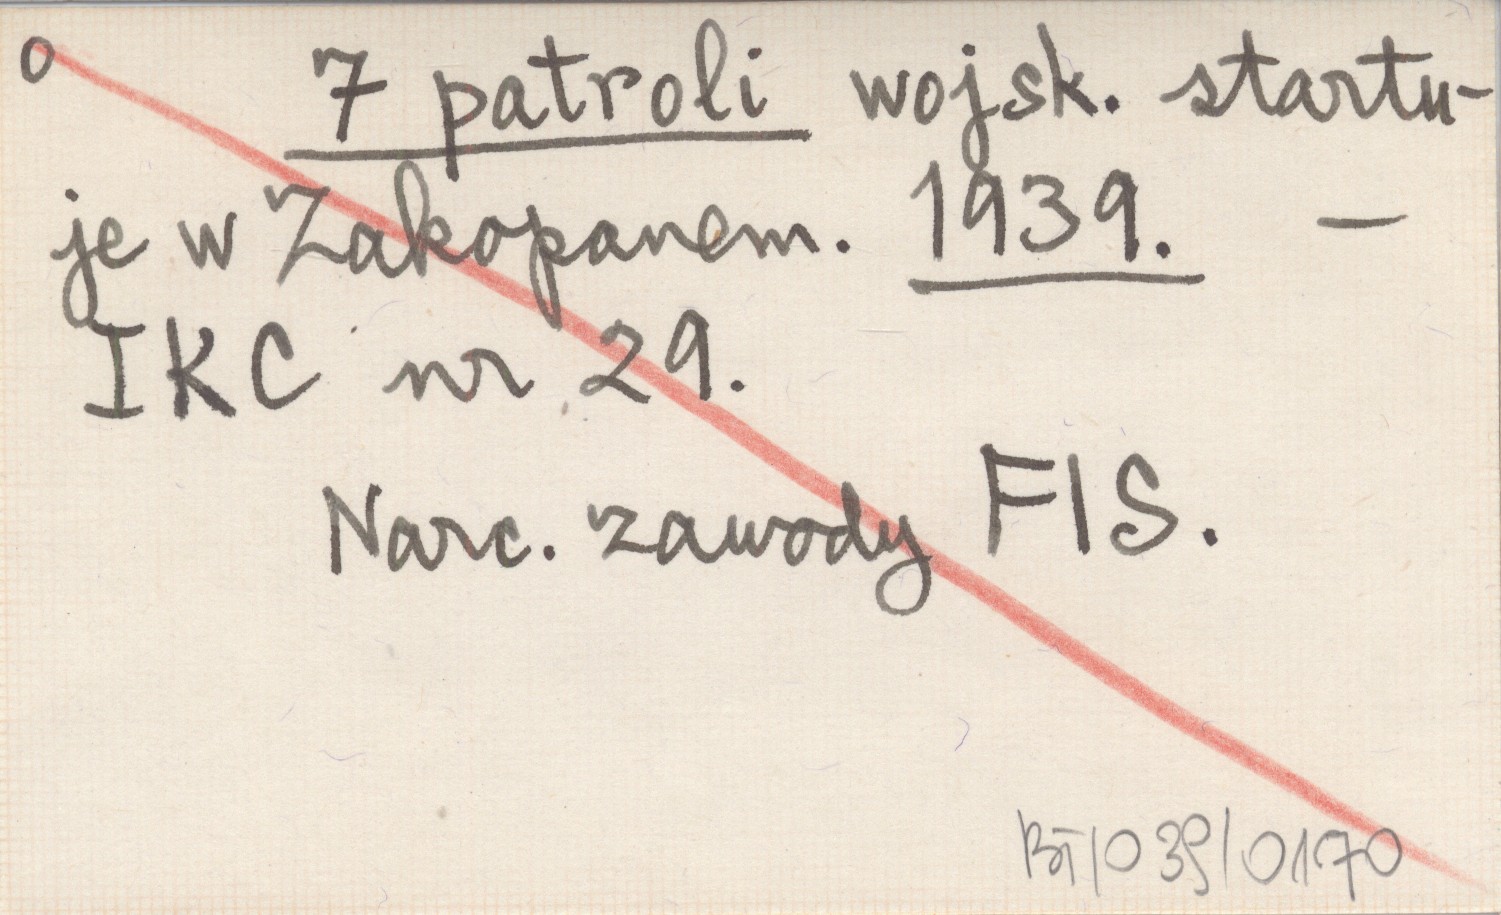 o 7 patroli wojsk. startu-
je w Zakopanem. 1939. —
IKC nr 29.
Narc. zawody FIS.
BT/039/0170